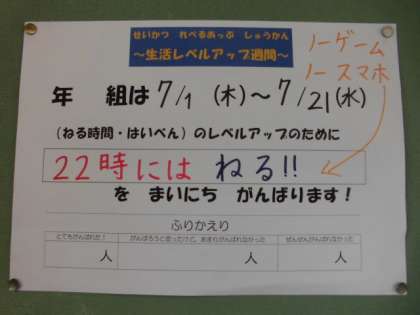 せいかつ れべるあっぷ しゅうかん
～生活レベルアップ週間～
ノーゲーム
ノースマホ
年 組は 7/1 (木)～7/21(水)
(ねる時間・はいべん)のレベルアップのために
22時には ねる!!
を まいにち がんばります!
ふりかえり
とてもがんばれた! がんばろうと思ったけど、あまりがんばれなかった ぜんぜんがんばれなかった
人 人 人